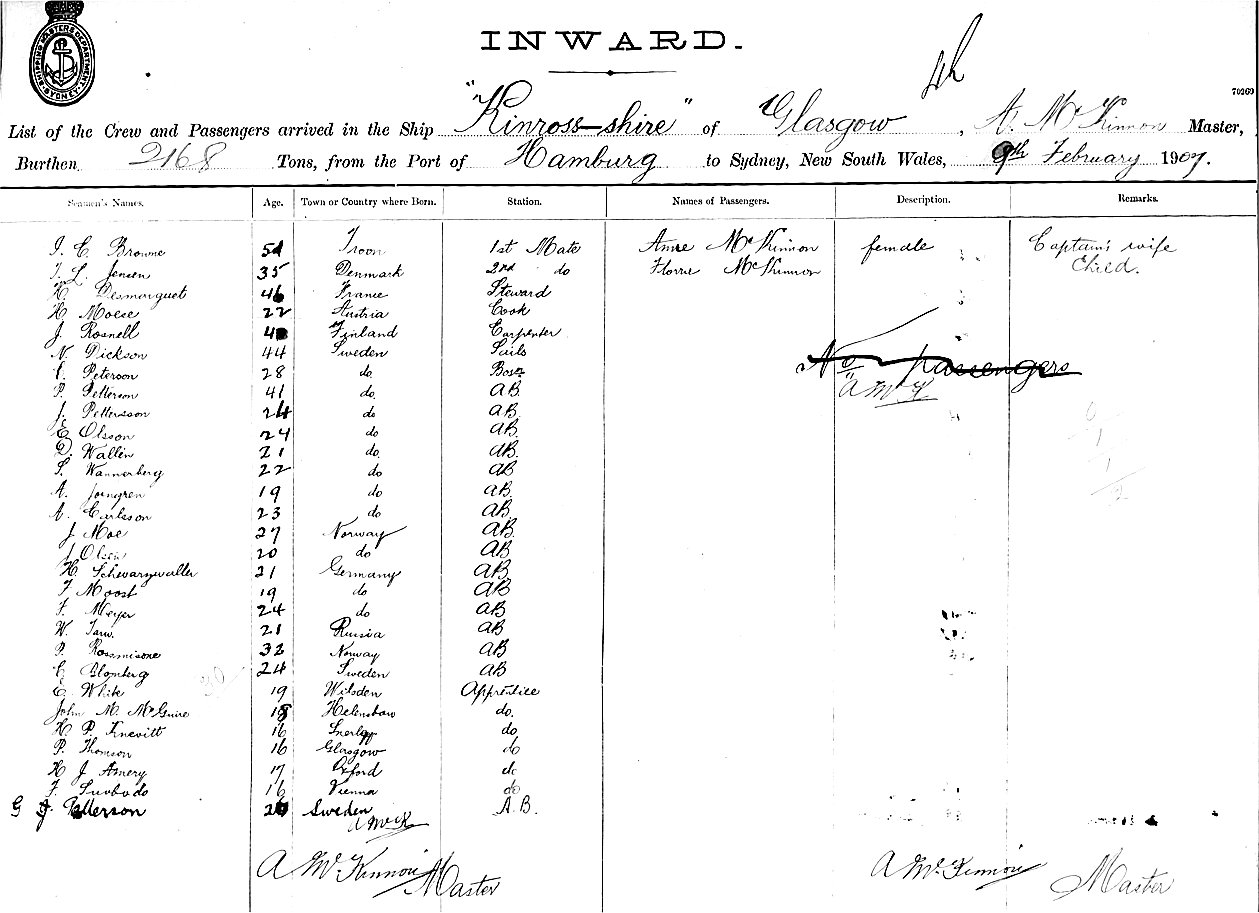 SHIPPING MASTERS DEPARTMENT SYDNEY
INWARD.
70269
List of the Crew and Passengers arrived in the Ship "Kinross-shire" of Glasgow, A. McKinnon Master,
Burthen 2168 Tons, from the Port of Hamburg to Sydney, New South Wales, 9th February 1907.
Seamen's Names. Age. Town or Country where Born. Station. Names of Passengers. Description. Remarks.
Browne Troon 1st Mate Annie McKinnon female Captain's wife
Jensen 35 Denmark 2nd do Florrie McKinnon Child.
H. Desmarquet 46 France Steward
H. Moese 22 Austria Cook
J. Rosnell Finland Carpenter
N. Dickson 44 Sweden Sails
Peterson 28 do. Bosn
P. Petterson 41 do. AB.
J. Pettersson 24 do AB.
E. Olsson 24 do AB.
Wallin 21 do. AB.
Wannerberg 22 do AB
A. 19 do AB.
A. Carlsson 23 do AB.
J Moe 27 Norway AB.
Olsen 20 do AB
H. Schwarzwaller 21 Germany AB
F Moost 19 do AB
F. Meyer 24 do AB
W. 21 Russia AB
P. 32 Norway AB
Blomberg 24 Sweden AB
No passengers
A McK
E. White 19 Wilsden Apprentice
John M. McGuire 18 do.
H P. Knevitt 16 do
P. Thomson 16 Glasgow do
H J Amery 17 Oxford do
F. Svoboda 16 Vienna do
G Petterson Sweden A.B.
A McK
A McKinnon Master
A McKinnon Master